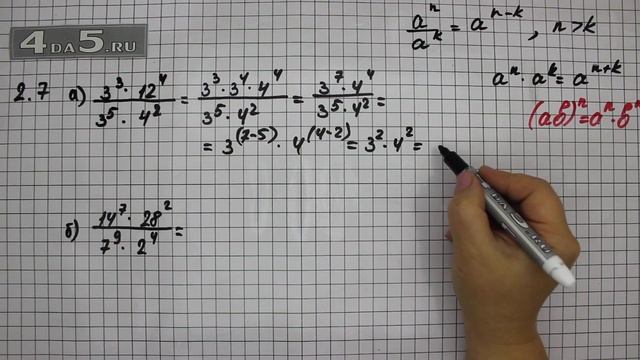 4DA5.RU
aⁿ/aᵏ = aⁿ⁻ᵏ, n>k
aⁿ · aᵏ = aⁿ⁺ᵏ
(ab)ⁿ = aⁿ · bⁿ
2.7 а) (3³ · 12⁴)/(3⁵ · 4²) = (3³ · 3⁴ · 4⁴)/(3⁵ · 4²) = (3⁷ · 4⁴)/(3⁵ · 4²) =
= 3⁽⁷⁻⁵⁾ · 4⁽⁴⁻²⁾ = 3² · 4² =
б) (14⁷ · 28²)/(7⁹ · 2⁴) =
4DA5.RU